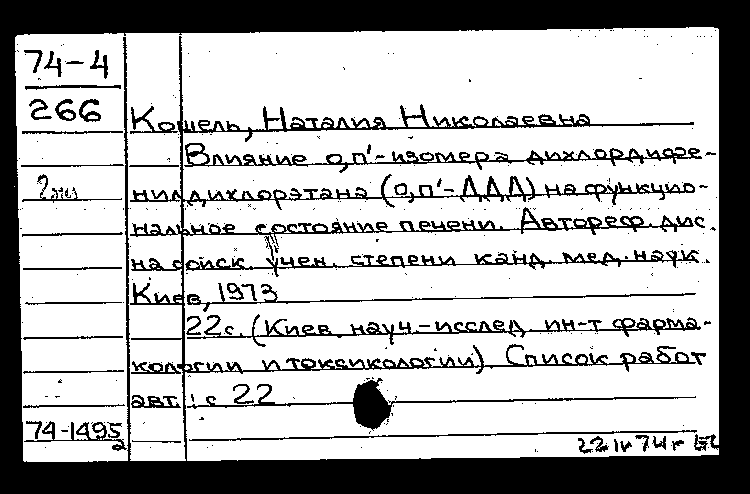 74-4
266
Кошель, Наталия Николаевна
Влияние о,п'-изомера дихлордифе-
2 экз
нилдихлорэтана (о,п'-ДДД) на функцио-
нальное состояние печени. Автореф. дис.
на соиск. учен. степени канд. мед. наук.
Киев, 1973
22 с. (Киев. науч.-исслед. ин-т фарма-
кологии и токсикологии). Список работ
авт.: с 22
74-1495
22 IV 74 г